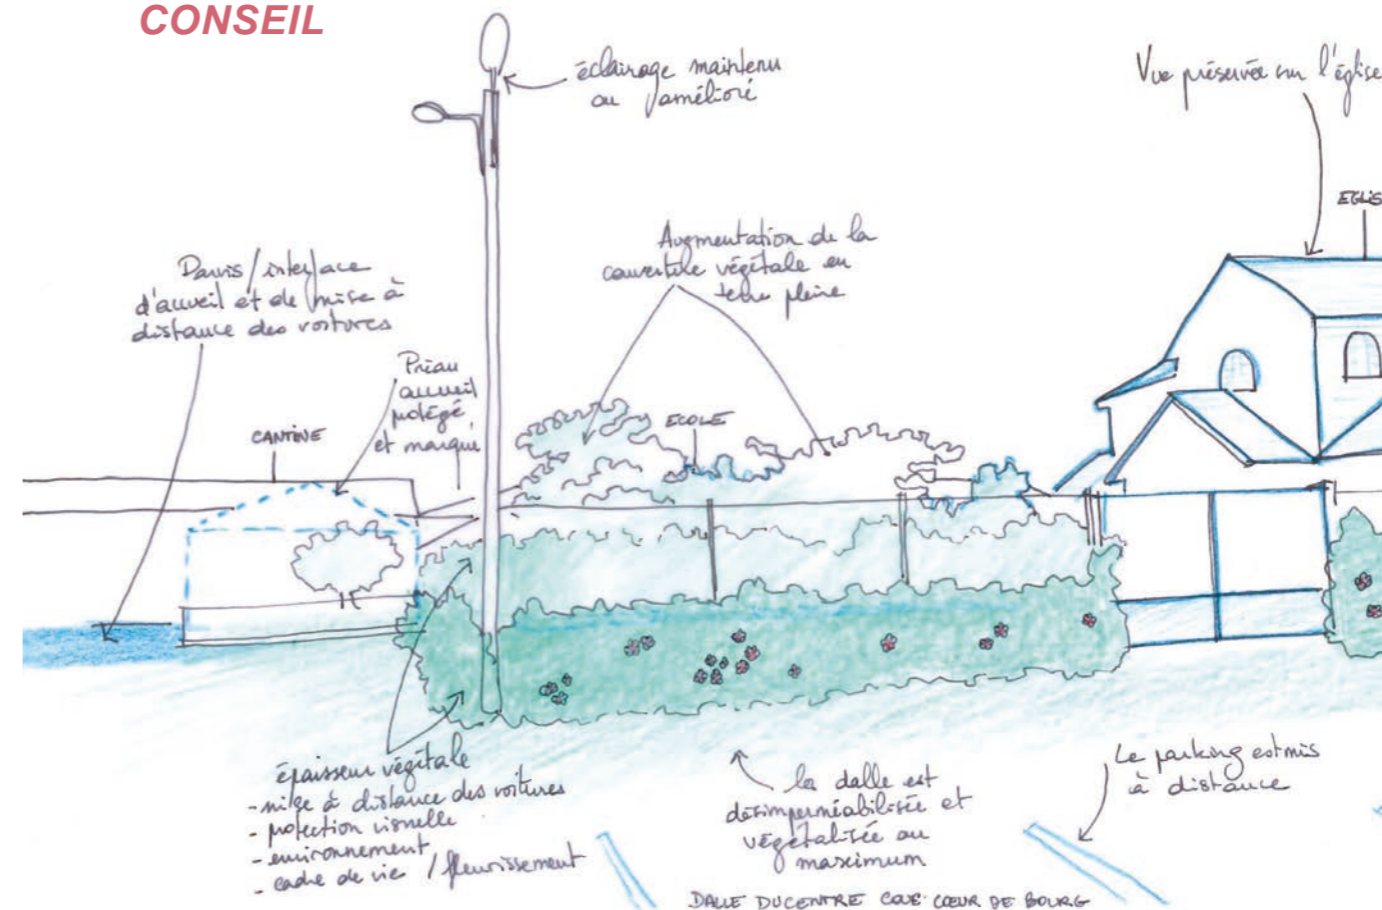 CONSEIL
éclairage maintenu
ou amélioré
Vue préservée sur l'église
EGLIS
Augmentation de la
couverture végétale en
terre pleine
Parvis / interface
d'accueil et de mise à
distance des voitures
Préau
accueil
protégé
et marqué
CANTINE
ECOLE
épaisseur végétale
- mise à distance des voitures
- protection visuelle
- environnement
- cadre de vie / fleurissement
la dalle est
désimperméabilisée et
végétalisée au
maximum
Le parking est mis
à distance
DALLE DU CENTRE COEUR DE BOURG